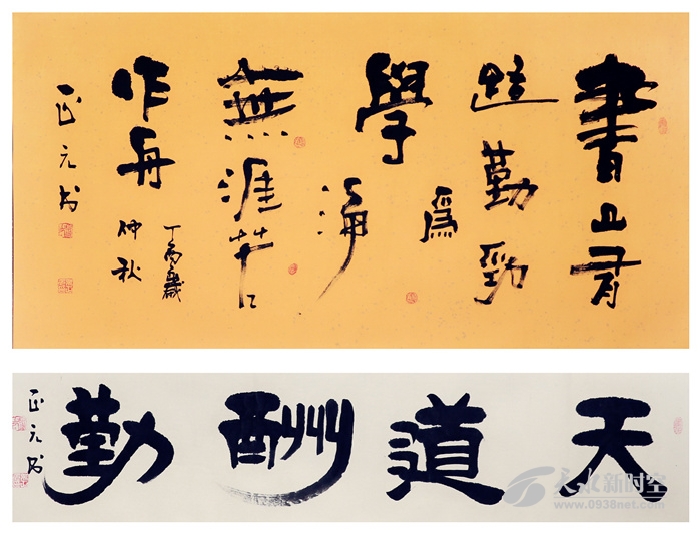 書山有
路勤勁
為
學
海
無涯苦
作舟
丁酉歲
仲秋
正元书
天道酬勤
正元书
天水新时空
www.0938net.com